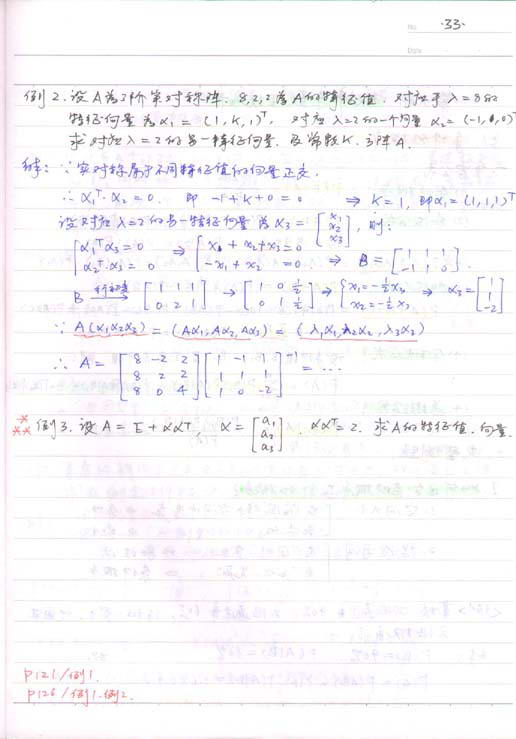 No ·33·
Date
例2.设A为3阶实对称阵. 8,2,2为A的特征值. 对应于λ=8的
特征向量为α₁=(1,K,1)ᵀ, 对应λ=2的一个向量α₂=(-1,1,0)ᵀ
求对应λ=2的另一特征向量. 及常数K.方阵A.
解:∵实对称属于不同特征值的向量正交.
∴α₁ᵀ·α₂=0. 即 -1+K+0=0 ⇒ K=1, 即α₁=(1,1,1)ᵀ
设对应λ=2的另一特征向量为α₃=[x₁ x₂ x₃], 则:
{α₁ᵀα₃=0 α₂ᵀ·α₃=0 ⇒ {x₁+x₂+x₃=0 -x₁+x₂=0 ⇒ B=[1 1 1; -1 1 0].
B 行初等→ [1 1 1; 0 2 1] → [1 0 ½; 0 1 ½] ⇒ {x₁=-½x₃ x₂=-½x₃ ⇒ α₃=[1 1 -2]
∵ A(α₁α₂α₃)=(Aα₁,Aα₂,Aα₃)=(λ₁α₁,λ₂α₂,λ₃α₃)
∴ A=[8 -2 2; 8 2 2; 8 0 4][1 -1 1; 1 1 1; 1 0 -2]⁻¹=⋯
** 例3.设A=E+ααᵀ, α=[a₁ a₂ a₃]. ααᵀ=2. 求A的特征值.向量.
P121/例1.
P126/例1.例2.